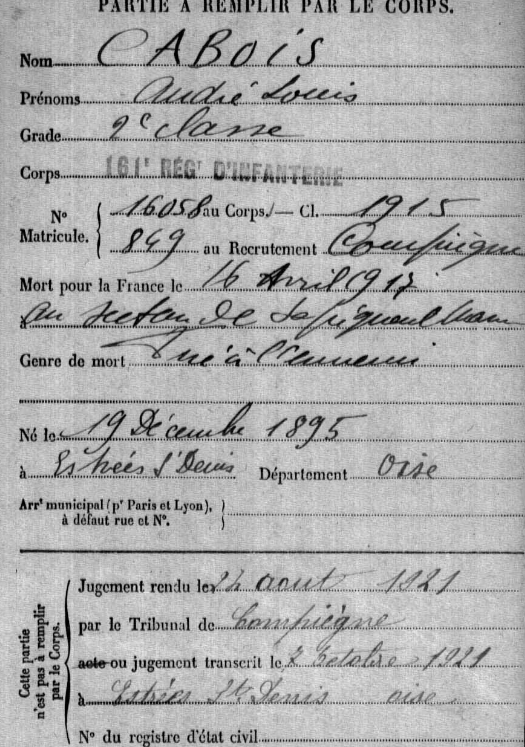 PARTIE À REMPLIR PAR LE CORPS.
Nom CABOIS
Prénoms André Louis
Grade 2e classe
Corps 161e RÉGt D'INFANTERIE
No Matricule. { 16058 au Corps. — Cl. 1915
869 au Recrutement Compiègne
Mort pour la France le 16 Avril 1917
au secteur de Sapigneul Marne
Genre de mort Tué à l'ennemi
Né le 19 Décembre 1895
à Estrées St Denis Département Oise
Arrt municipal (pr Paris et Lyon), }
à défaut rue et No.
Cette partie n'est pas à remplir par le Corps.
Jugement rendu le 24 aout 1921
par le Tribunal de Compiègne
acte ou jugement transcrit le 2 Octobre 1921
à Estrées St Denis oise
No du registre d'état civil